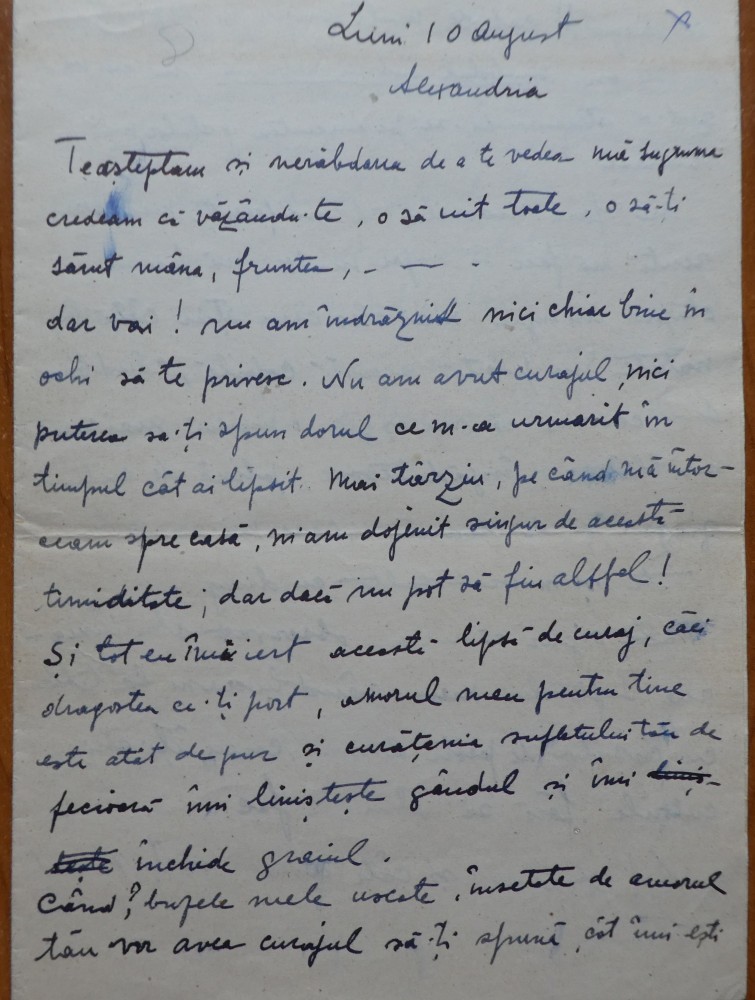 Luni 10 August
Alexandria
Te așteptam și nerăbdarea de a te vedea mă sugruma
credeam că văzându-te, o să uit toate, o să-ți
sărut mâna, fruntea, - — -
dar vai! nu am îndrăznit nici chiar bine în
ochi să te privesc. Nu am avut curajul, nici
puterea sa-ți spun dorul ce m-a urmarit în
timpul cât ai lipsit. Mai târziu, pe când mă întor-
ceam spre casă, m'am dojenit singur de această
timiditate; dar dacă nu pot să fiu altfel!
Și tot eu îmi iert această lipsă de curaj, căci
dragostea ce-ți port, amorul meu pentru tine
este atât de pur și curățenia sufletului tău de
fecioară îmi liniștește gândul și îmi liniș-
tește închide graiul.
Când? buzele mele uscate, însetate de amorul
tău vor avea curajul să-ți spună, cât îmi ești